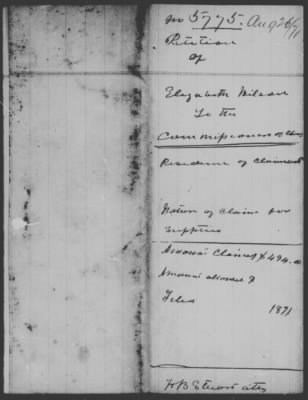 No 5775. Aug 26/71
Petition
of
Elizabeth Wilson
To the
Commissioners of Claims
Residence of Claimant
Nature of Claim for
Supplies
Amount Claimed $494.00
Amount allowed $
Filed
1871
Stewart atty